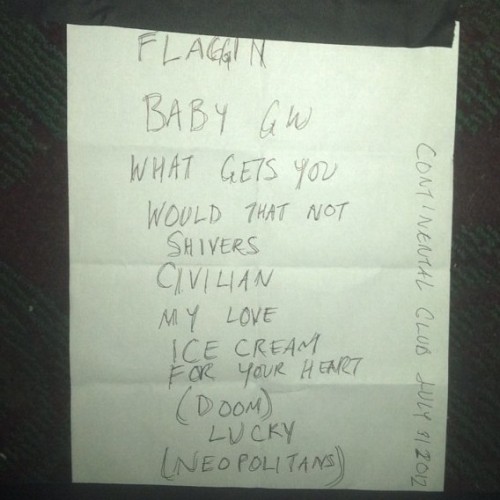 FLAGGIN
BABY GW
WHAT GETS YOU
WOULD THAT NOT
SHIVERS
CIVILIAN
MY LOVE
ICE CREAM
FOR YOUR HEART
(DOOM)
LUCKY
(NEOPOLITANS)
CONTINENTAL CLUB JULY 2012